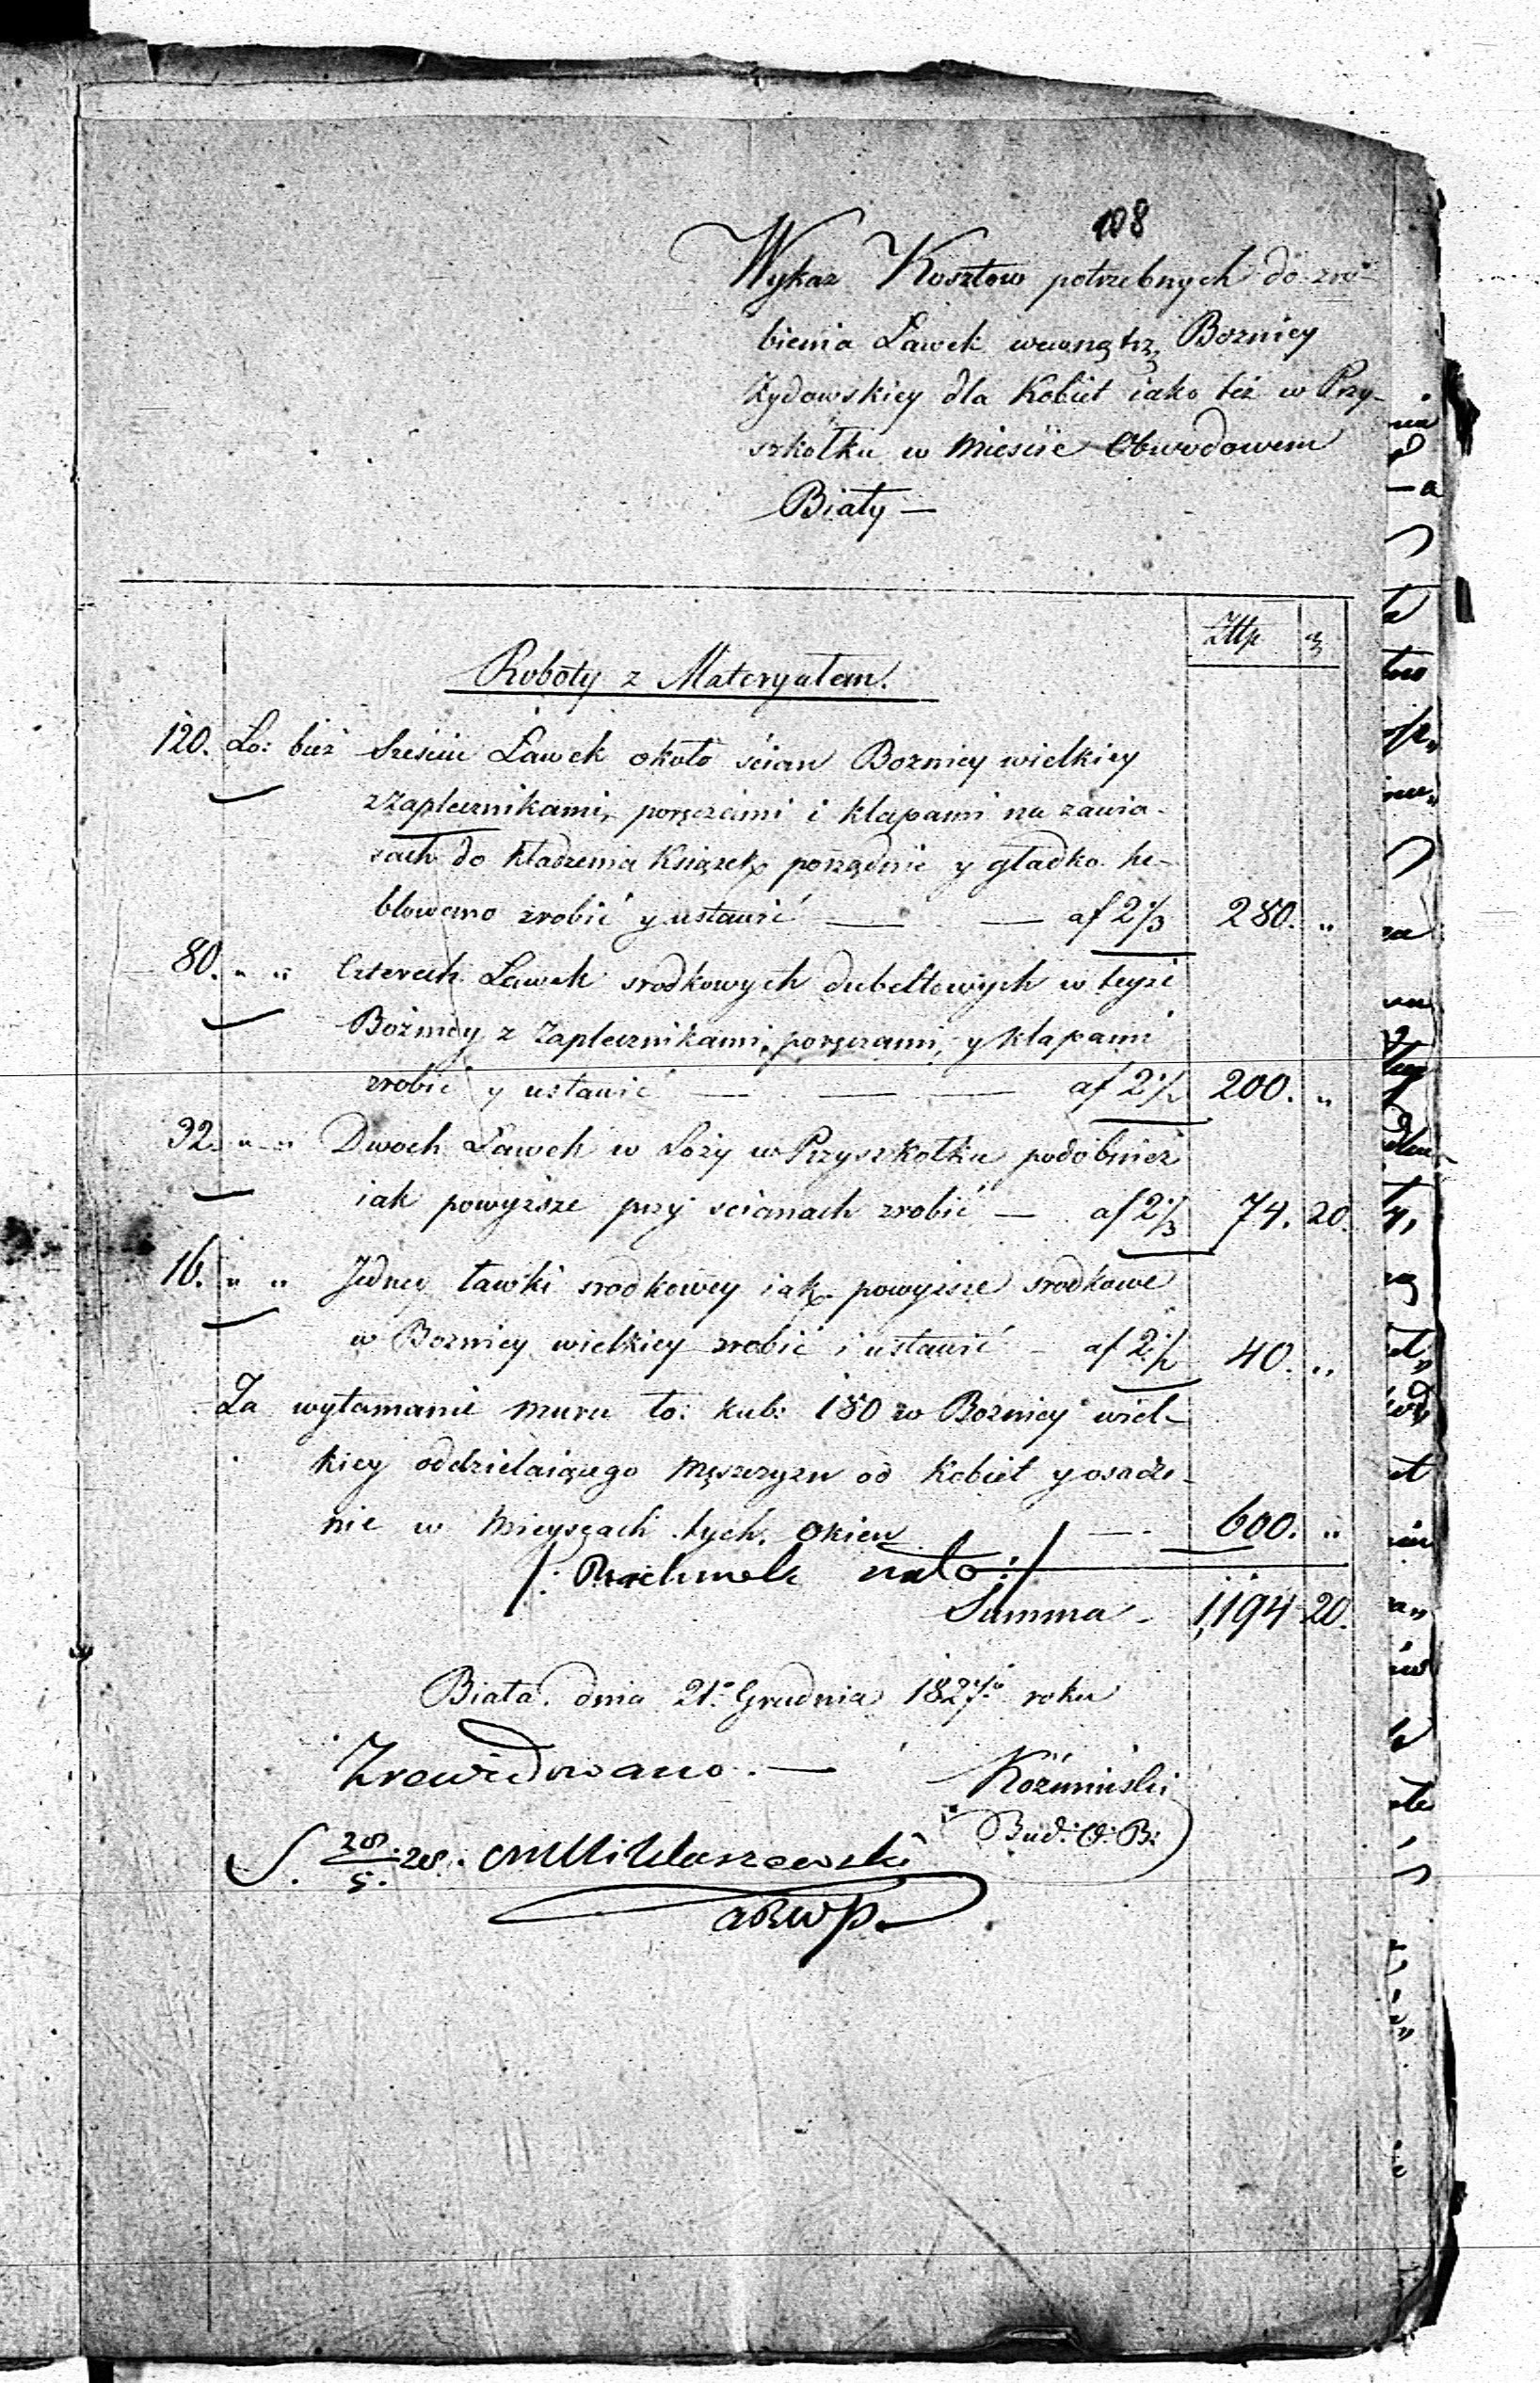 108
Wykaz Kosztow potrzebnych do zro-
bienia Ławek wewnątrz Boznicy
Żydowskiey dla Kobiet iako też w Przy-
szkołku w Mieście Obwodowem
Biały —
Złtp gr
Roboty z Materyałem.
120. Ło: bież Sześciu Ławek około ścian Boznicy wielkiey
z Zaplecznikami, poręczami i klapami na zawia-
sach do kładzenia Książek porządnie y gładko he-
blowano zrobić y ustawić — — af 2⅓ 280. „
80. „ „ Czterech Ławek srodkowych dubeltowych w teyże
Bożnicy z Zaplecznikami, poręczami, y klapami
zrobić y ustawić — — — af 2½ 200. „
32. „ „ Dwoch Ławek w Loży w Przyszkołku podobnież
iak powyższe przy scianach zrobić — af 2⅓ 74. 20.
16. „ „ Jedney ławki srodkowey iak powyższe srodkowe
w Boznicy wielkiey zrobić i ustawić — af 2½ 40. „
Za wyłamanie muru ło: kub: 180 w Bożnicy wiel-
kiey oddzielaiącego Męszczyzn od Kobiet y osadze-
nie w Mieyscach tych okien — 600. „
/: Rachunek nato :/
Summa — 1,194 20.
Biała dnia 21º Grudnia 1827go roku
Zrewidowano. —
Koźmiński
Bud: O: B:
S. 28/5. 28.
ABWP.